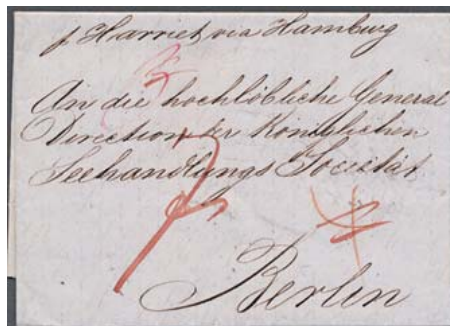 p Harriet via Hamburg
An die hochlöbliche General
Direction der Königlichen
Seehandlungs Societät
Berlin